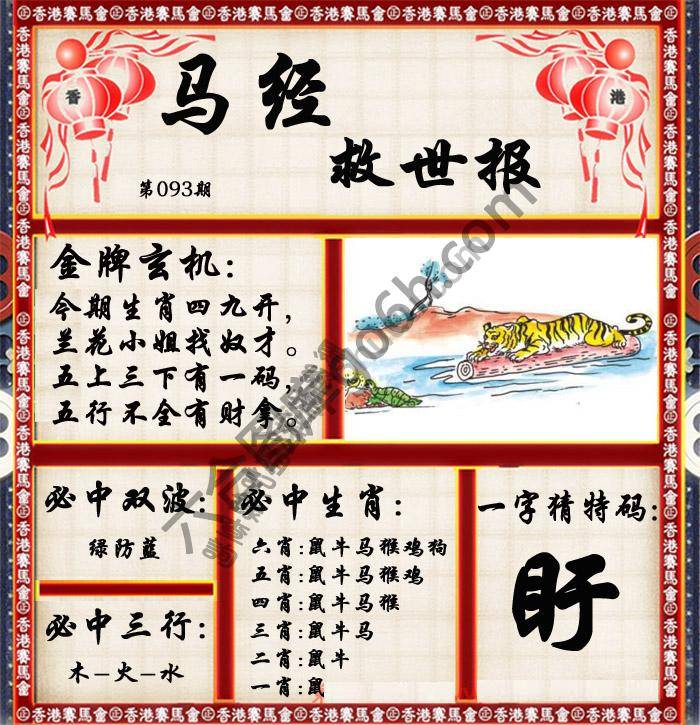 香港賽馬會㊣香港賽馬會㊣香港賽馬會㊣香港賽馬會㊣香港賽馬會㊣香港賽馬會
香 港
马经
救世报
第093期
金牌玄机:
今期生肖四九开,
兰花小姐找奴才。
五上三下有一码,
五行不全有财拿。
必中双波:
绿防蓝
必中三行:
木-火-水
必中生肖:
六肖:鼠牛马猴鸡狗
五肖:鼠牛马猴鸡
四肖:鼠牛马猴
三肖:鼠牛马
二肖:鼠牛
一肖:鼠
一字猜特码:
盱